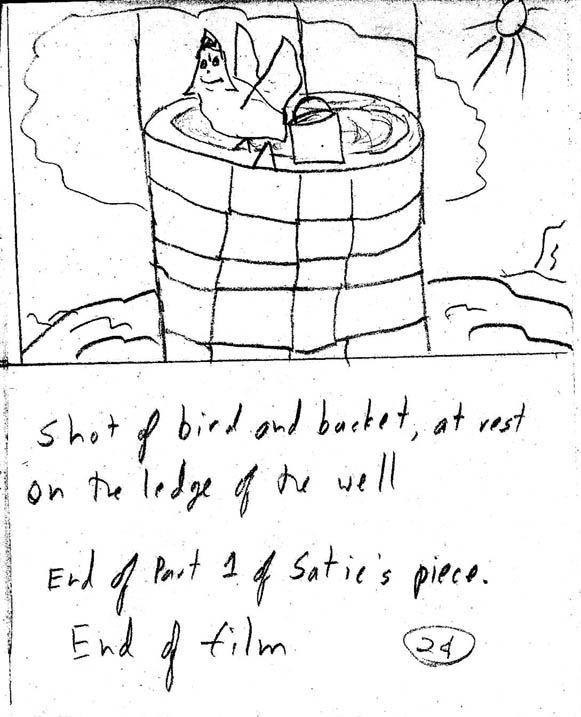 Shot of bird and bucket, at rest
on the ledge of the well
End of Part 1 of Satie's piece.
End of film
24